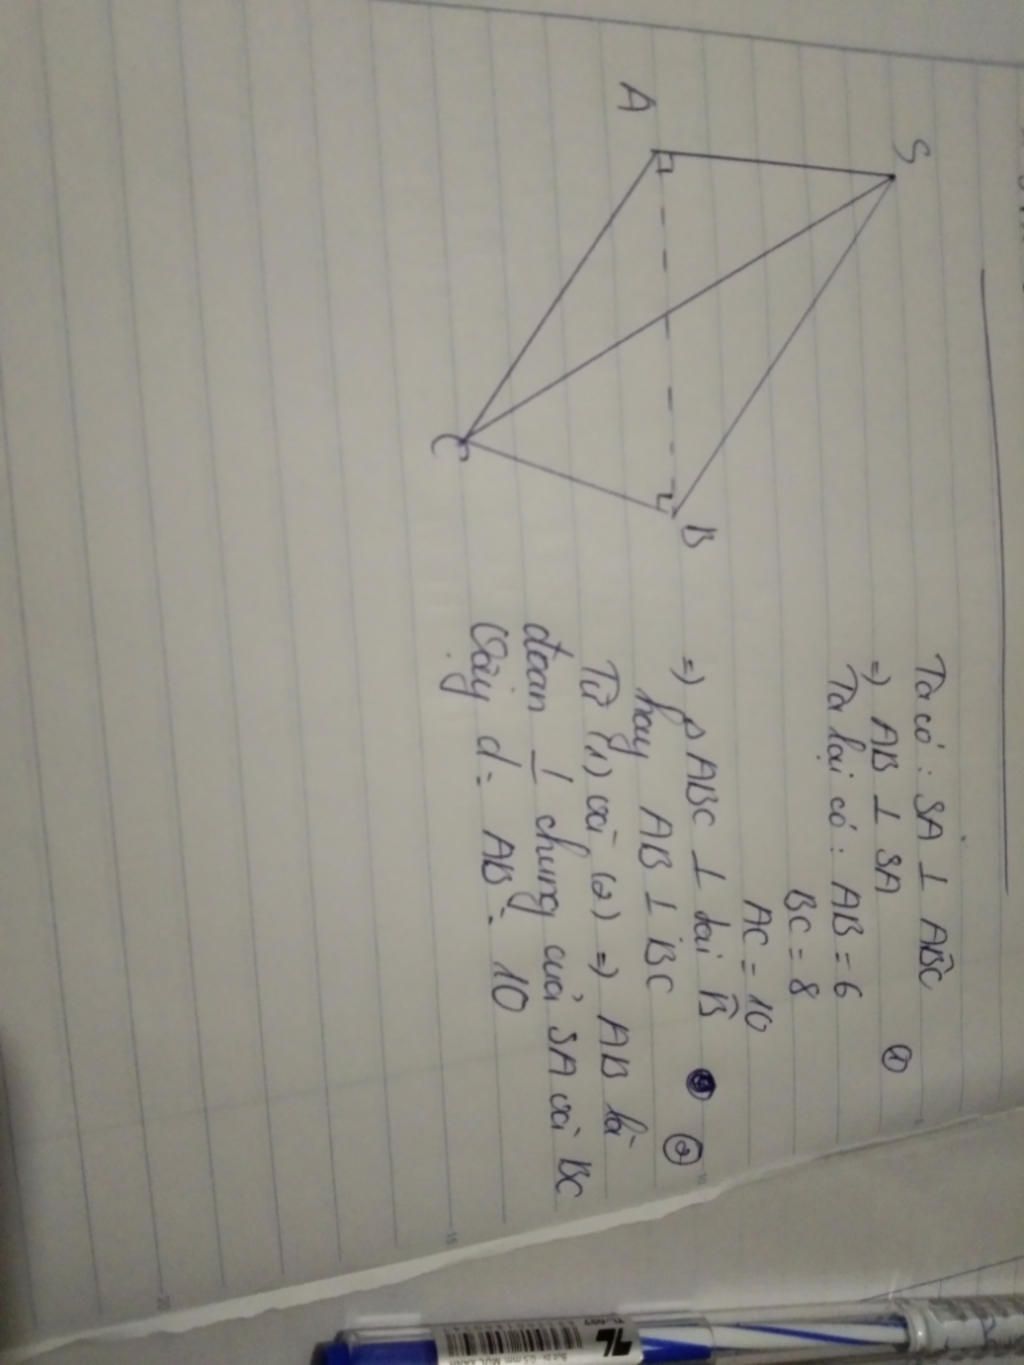 S
A
B
C
Ta có: SA ⊥ ABC
=> AB ⊥ SA ①
Ta lại có: AB = 6
BC = 8
AC = 10
=> △ ABC ⊥ tại B̂ ②
hay AB ⊥ BC
Từ (1) và (2) => AB là
đoạn ⊥ chung của SA và BC
Vậy d = AB = 10
TL
15
20